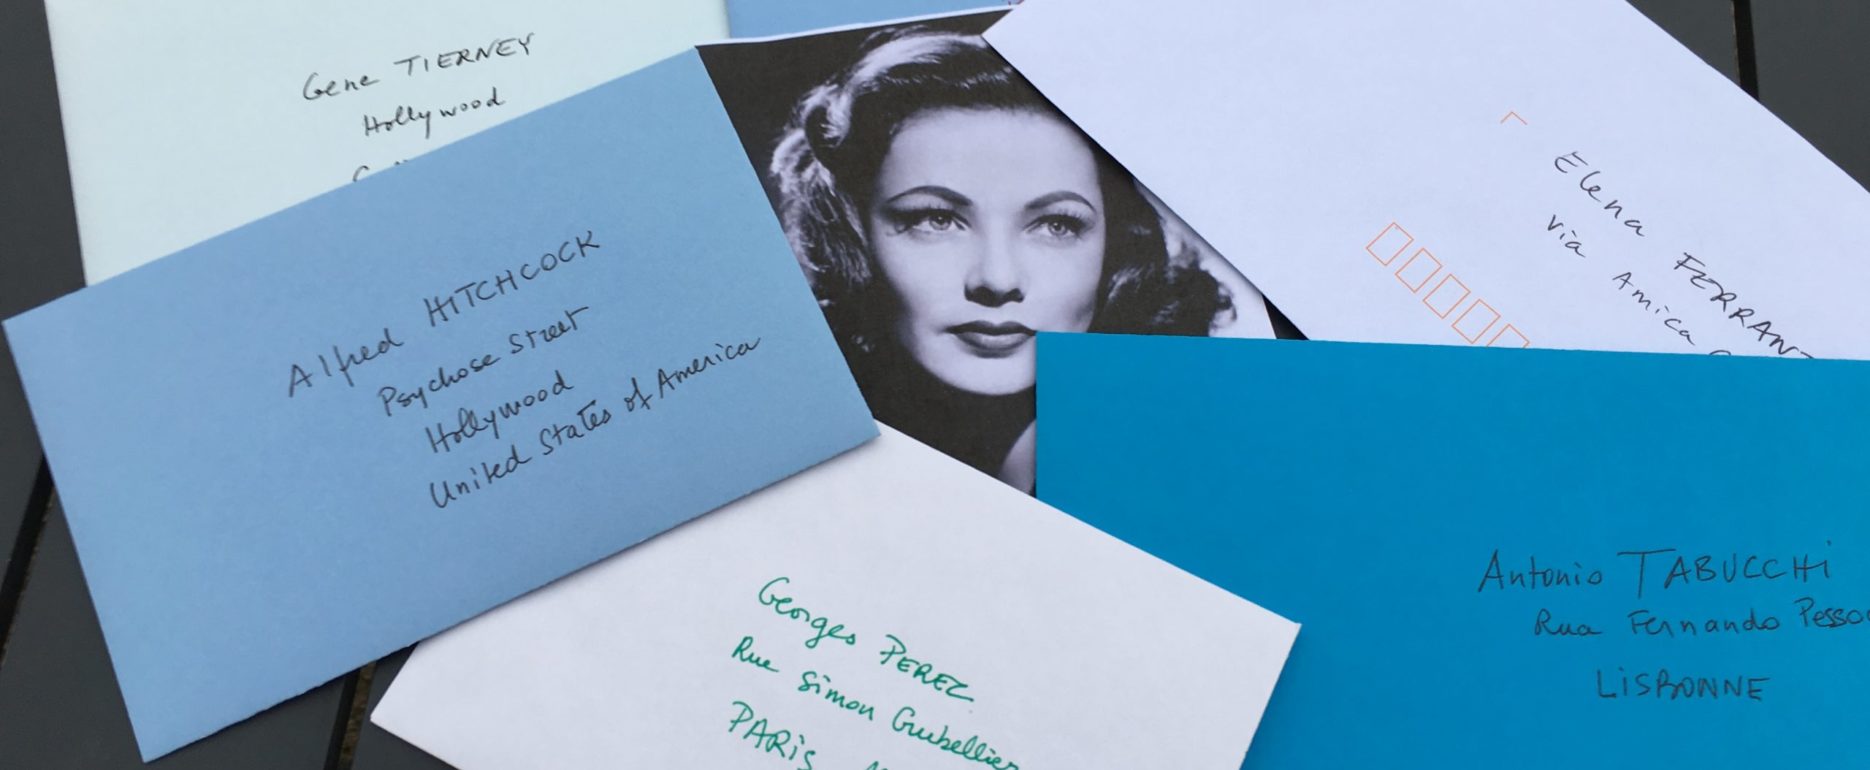 Gene TIERNEY
Hollywood
Alfred HITCHCOCK
Psychose Street
Hollywood
United States of America
Elena FERRANT
via Amica
Georges PEREC
Rue Simon Crubellier
PARIS
Antonio TABUCCHi
Rua Fernando Pesso
LiSBONNE